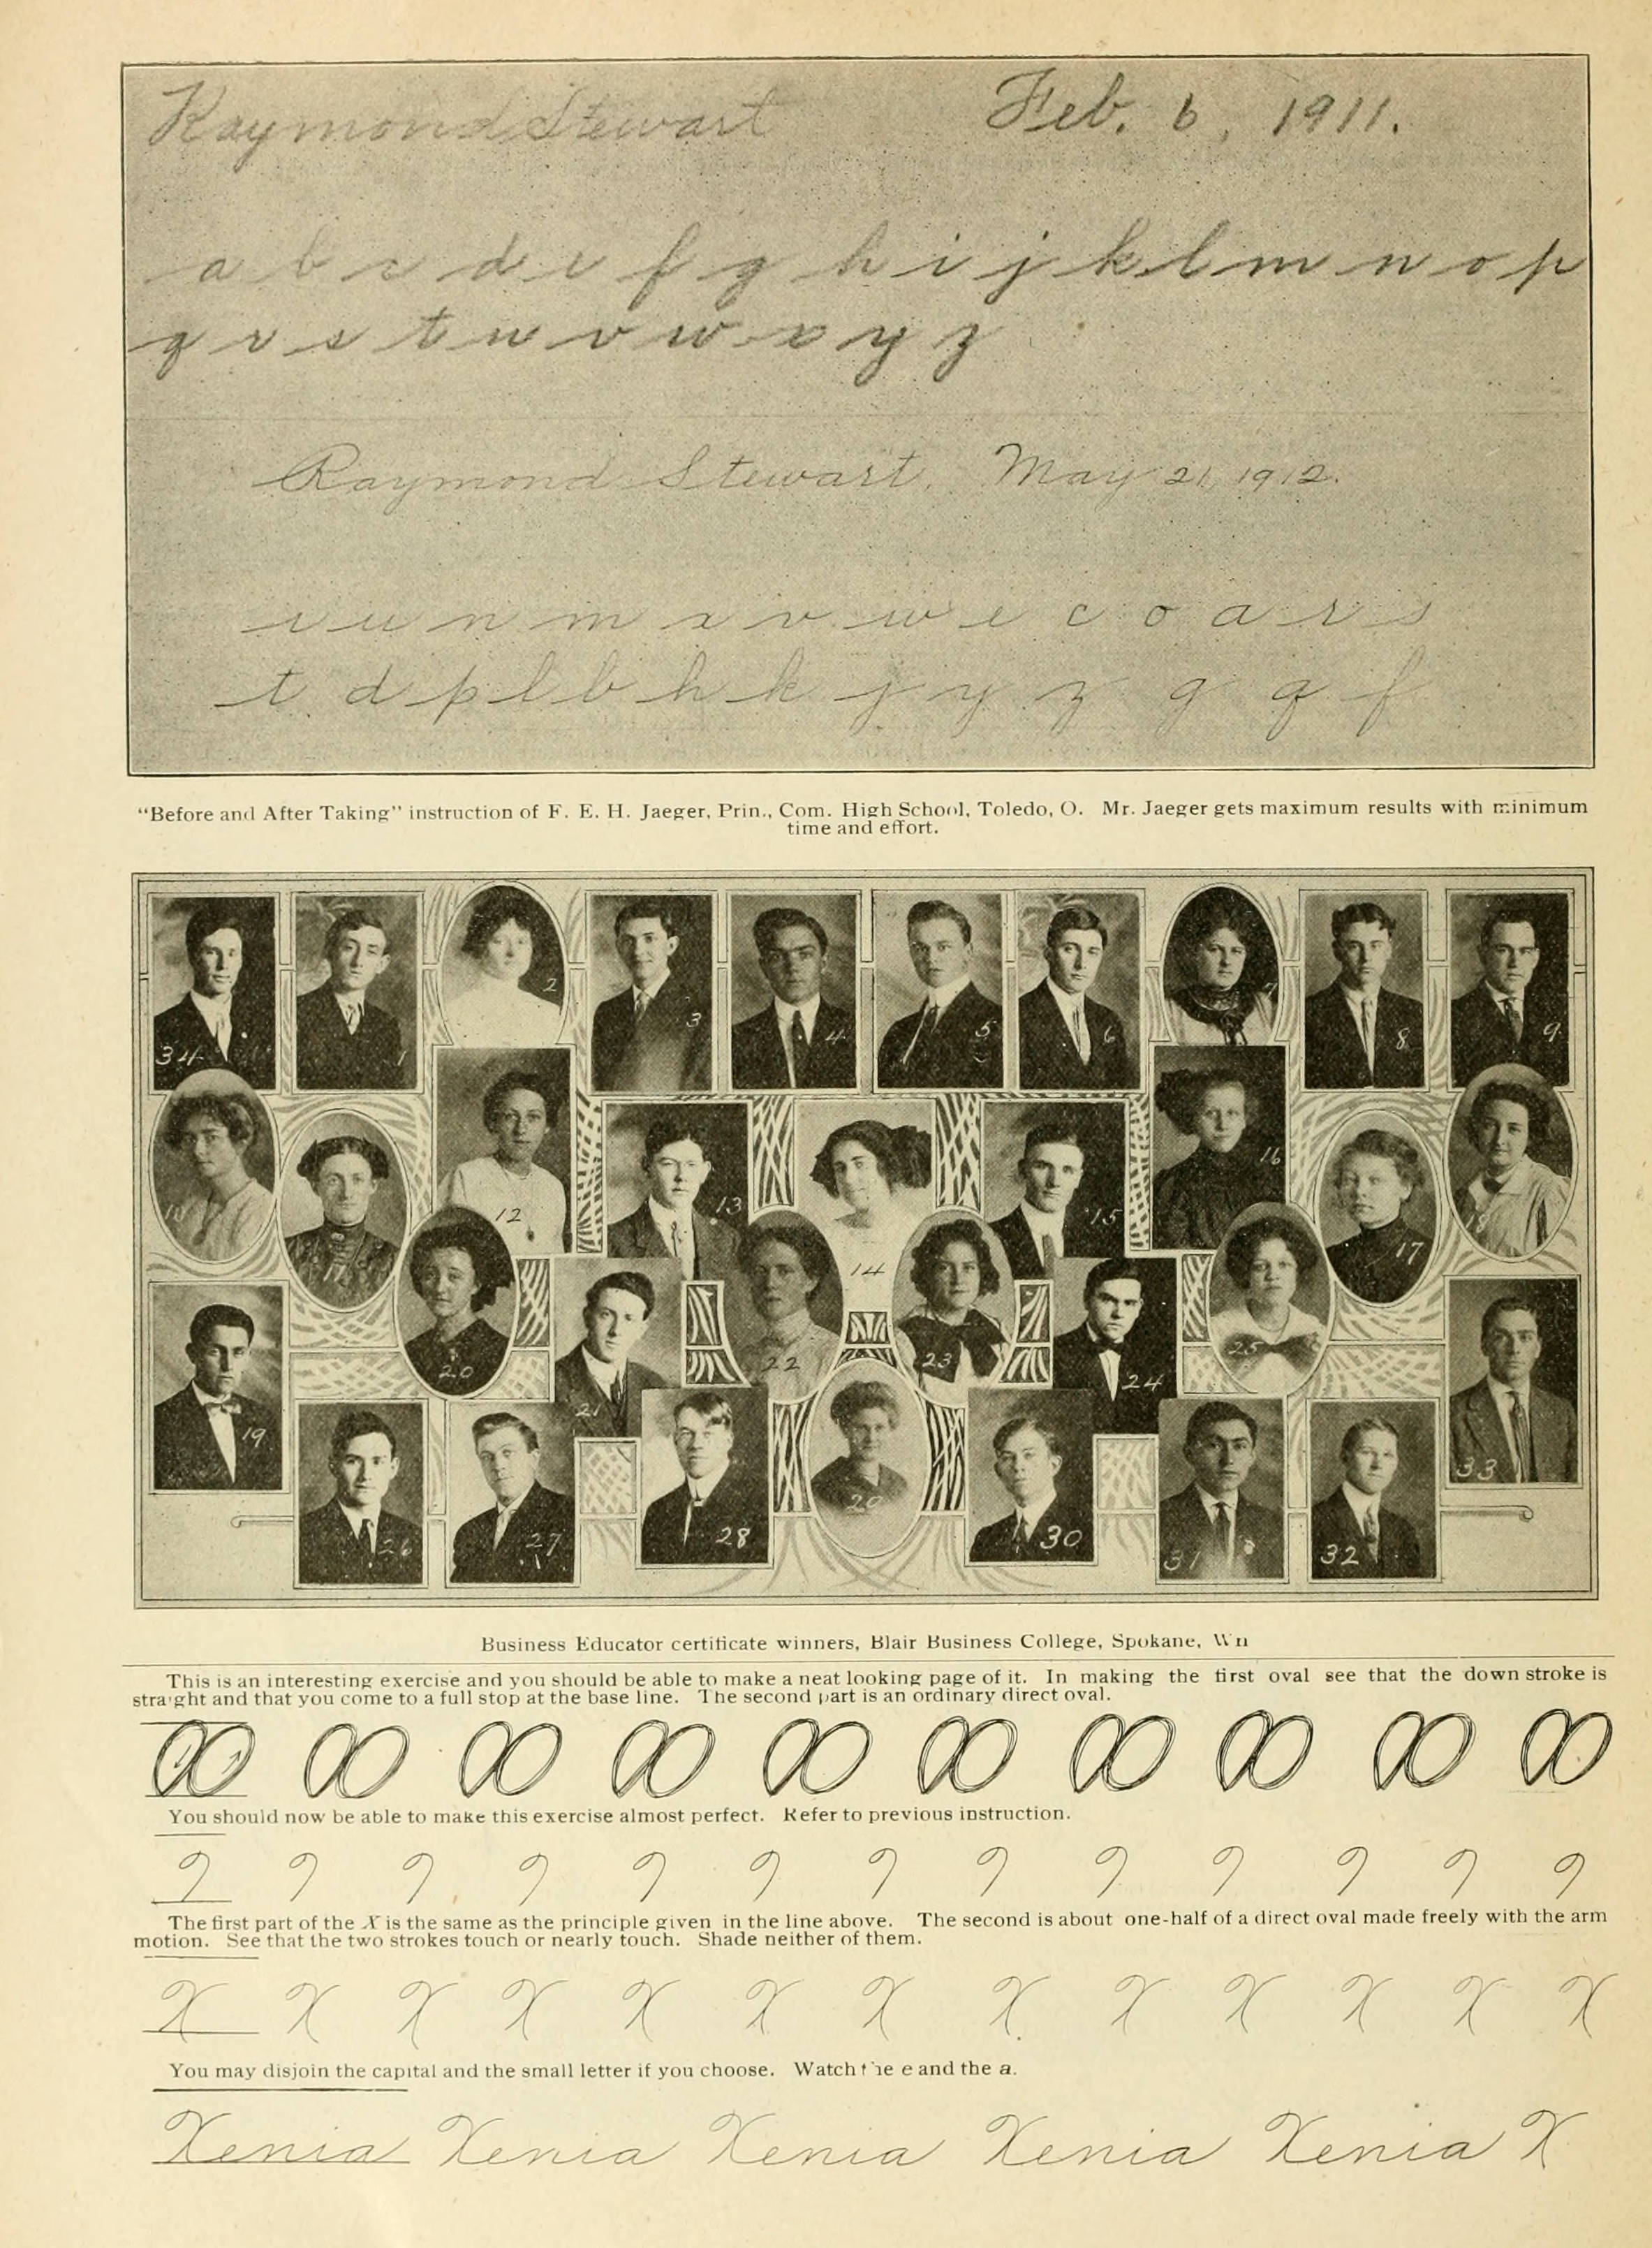 Raymond Stewart Feb. 6, 1911.
a b c d e f g h i j k l m n o p
q r s t u v w x y z
Raymond Stewart. May 21, 1912.
i u n m x v w e c o a r s
t d p l b h k j y z g q f
"Before and After Taking" instruction of F. E. H. Jaeger, Prin., Com. High School, Toledo, O. Mr. Jaeger gets maximum results with minimum
time and effort.
34 1 2 3 4 5 6 7 8 9
10 11 12 13 14 15 16 17 18
19 20 21 22 23 24 25 33
26 27 28 29 30 31 32
Business Educator certificate winners, Blair Business College, Spokane, Wn
This is an interesting exercise and you should be able to make a neat looking page of it. In making the first oval see that the down stroke is
straight and that you come to a full stop at the base line. The second part is an ordinary direct oval.
You should now be able to make this exercise almost perfect. Refer to previous instruction.
The first part of the X is the same as the principle given in the line above. The second is about one-half of a direct oval made freely with the arm
motion. See that the two strokes touch or nearly touch. Shade neither of them.
X X X X X X X X X X X X X
You may disjoin the capital and the small letter if you choose. Watch the e and the a.
Xenia Xenia Xenia Xenia Xenia X